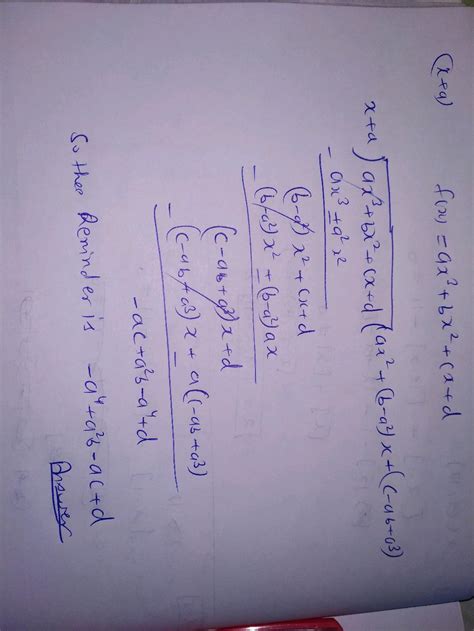 (x+a)   f(x) = ax³+bx²+cx+d
x+a ) ax³+bx²+cx+d ( ax²+(b-a²)x+(c-ab+a³)
- ax³ ± a²x²
(b-a²)x²+cx+d
- (b-a²)x² ± (b-a²)ax
(c-ab+a³)x+d
- (c-ab+a³)x ± a(c-ab+a³)
-ac+a²b-a⁴+d
So thee Reminder is -a⁴+a²b-ac+d
Answer